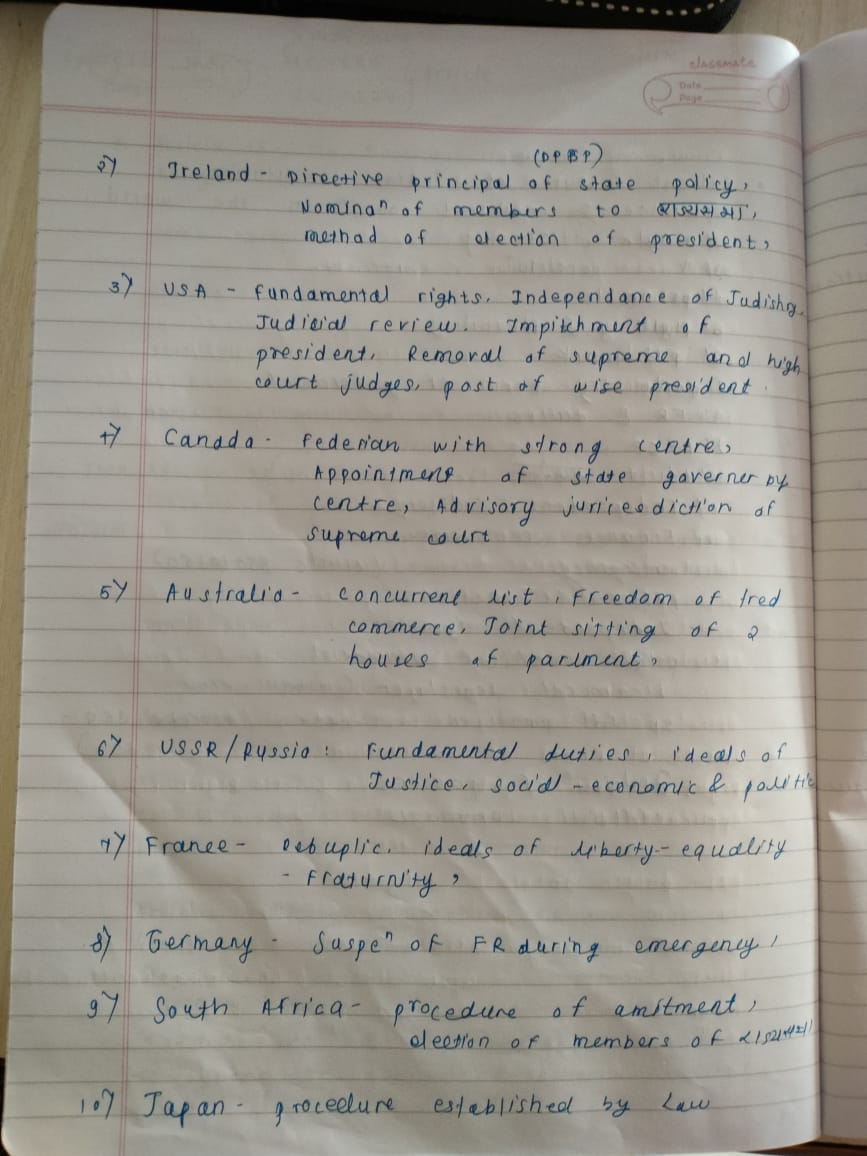 classmate
Date
Page
(DPSP)
2) Ireland - Directive principal of state policy,
Nominaⁿ of members to राज्यसभा,
methad of election of president,
3) USA - fundamental rights, Independance of Judishry,
Judicial review. Impitchment of
president, Removal of supreme and high
court judges, post of wise president.
4) Canada - Federian with strong centre,
Appointment of state governer by
centre, Advisory juricesdiction of
supreme court
5) Australia - concurrent list, freedom of tred
commerce, Joint sitting of 2
houses of parlment,
6) USSR/Russia : Fundamental duties, ideals of
Justice, social - economic & politic
7) France - Rebuplic, ideals of liberty - equality
- Fraturnity,
8) Germany - Suspeⁿ of FR during emergency,
9) South Africa - procedure of amitment,
election of members of राज्यसभा
10) Japan - procedure established by Law